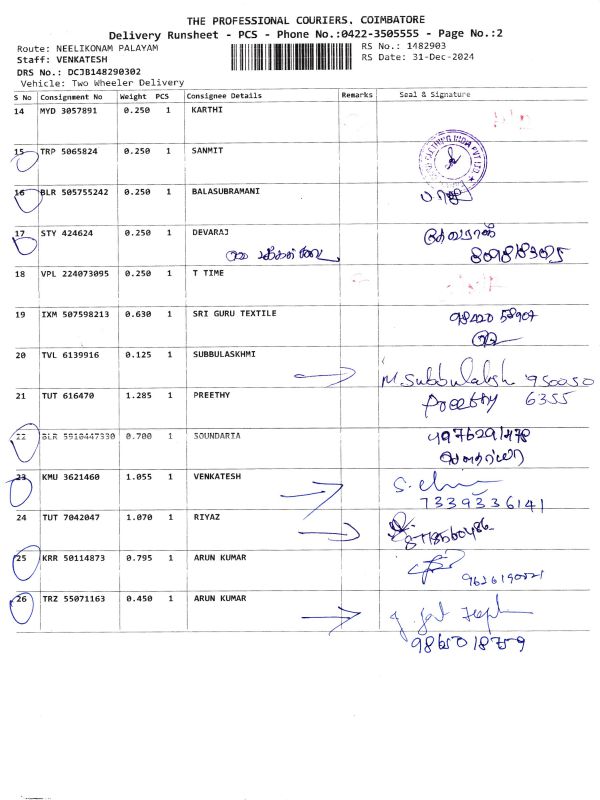 THE PROFESSIONAL COURIERS, COIMBATORE
Delivery Runsheet - PCS - Phone No.:0422-3505555 - Page No.:2
Route: NEELIKONAM PALAYAM
RS No.: 1482903
Staff: VENKATESH
RS Date: 31-Dec-2024
DRS No.: DCJB148290302
Vehicle: Two Wheeler Delivery
S No Consignment No Weight PCS Consignee Details Remarks Seal & Signature
14 MYD 3057891 0.250 1 KARTHI
15 TRP 5065824 0.250 1 SANMIT
16 BLR 505755242 0.250 1 BALASUBRAMANI
17 STY 424624 0.250 1 DEVARAJ
18 VPL 224073095 0.250 1 T TIME
19 IXM 507598213 0.630 1 SRI GURU TEXTILE
20 TVL 6139916 0.125 1 SUBBULASKHMI
M. Subbulaksh 950050
21 TUT 616470 1.285 1 PREETHY Preethy 6355
22 BLR 5910447330 0.700 1 SOUNDARIA
23 KMU 3621460 1.055 1 VENKATESH
7339336141
24 TUT 7042047 1.070 1 RIYAZ
25 KRR 50114873 0.795 1 ARUN KUMAR
26 TRZ 55071163 0.450 1 ARUN KUMAR
9865018759